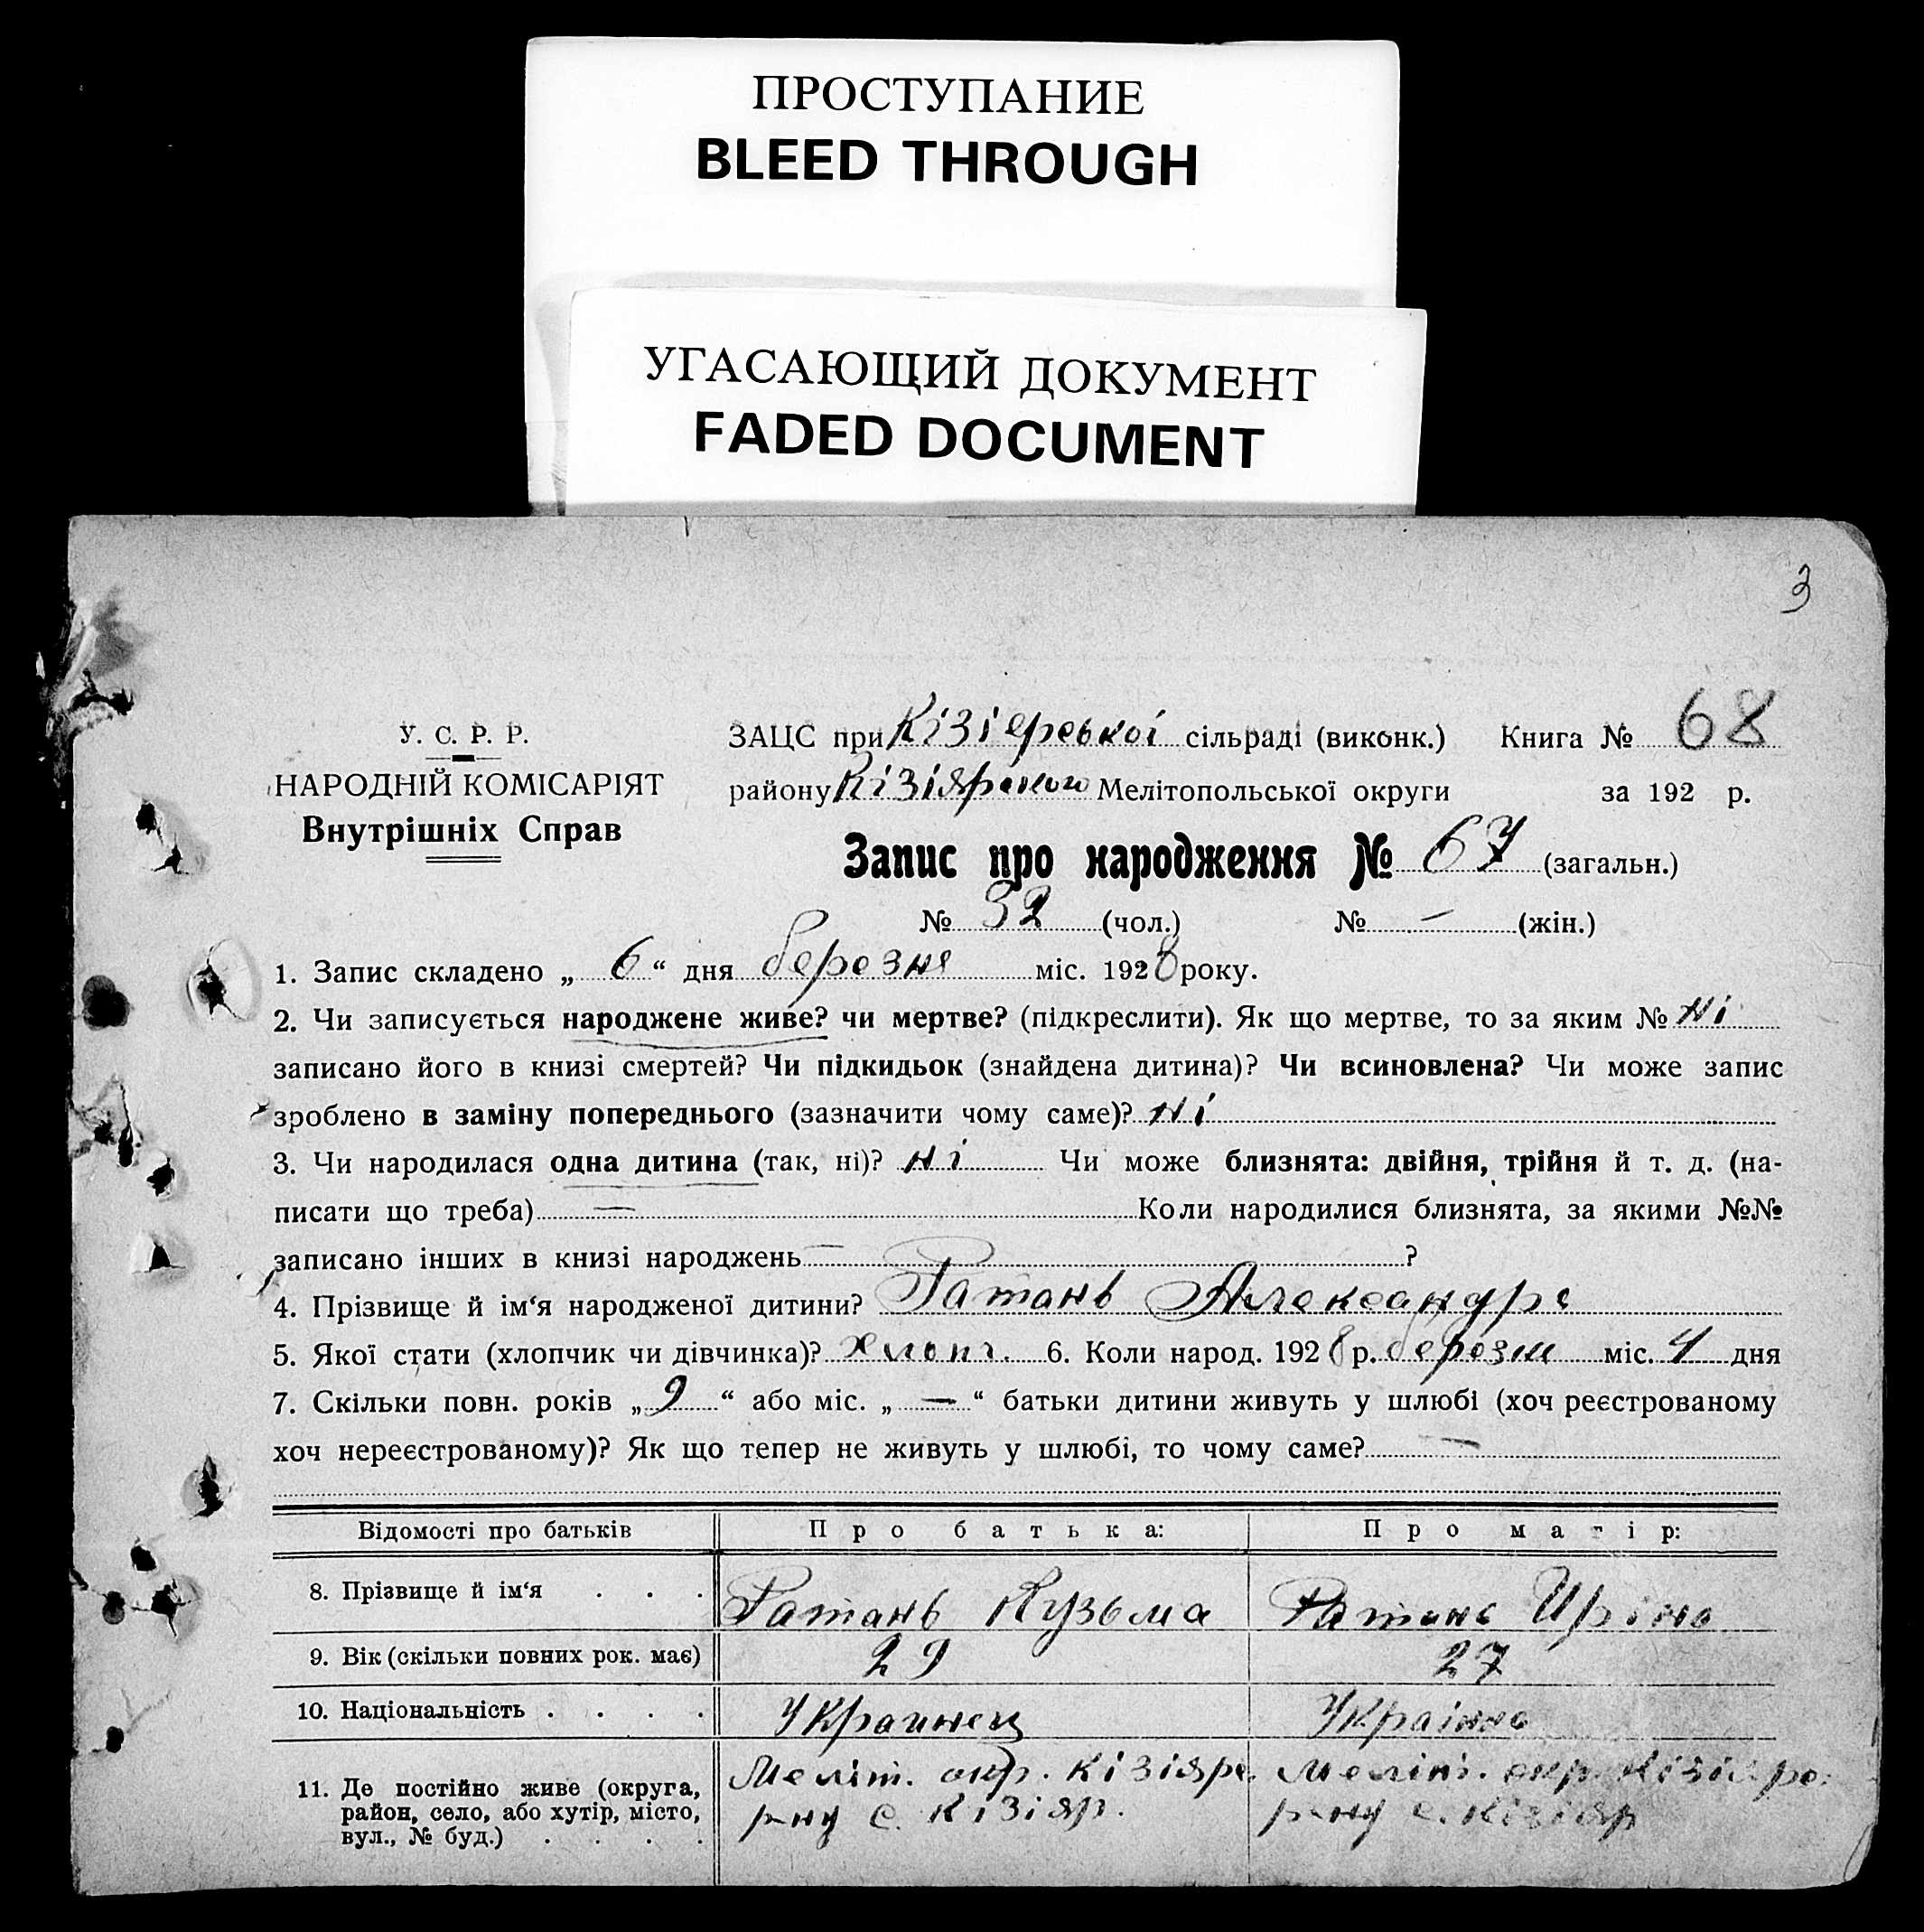 ПРОСТУПАНИЕ
BLEED THROUGH
УГАСАЮЩИЙ ДОКУМЕНТ
FADED DOCUMENT
3
У. С. Р. Р.
НАРОДНІЙ КОМІСАРІЯТ
Внутрішніх Справ
ЗАЦС при Кізіерської сільраді (виконк.) Книга № 68
району Кізіярського Мелітопольської округи за 192 р.
Запис про народження № 67 (загальн.)
№ 32 (чол.) № – (жін.)
1. Запис складено „ 6 “ дня березня міс. 1928 року.
2. Чи записується народжене живе? чи мертве? (підкреслити). Як що мертве, то за яким № Ні
записано його в книзі смертей? Чи підкидьок (знайдена дитина)? Чи всиновлена? Чи може запис
зроблено в заміну попереднього (зазначити чому саме)? Ні
3. Чи народилася одна дитина (так, ні)? Ні Чи може близнята: двійня, трійня й т. д. (на-
писати що треба) — Коли народилися близнята, за якими №№
записано інших в книзі народжень — ?
4. Прізвище й ім‘я народженої дитини? Ратань Александр
5. Якої стати (хлопчик чи дівчинка)? хлопч. 6. Коли народ. 1928 р. березня міс. 4 дня
7. Скільки повн. років „ 9 “ або міс. „ — “ батьки дитини живуть у шлюбі (хоч реєстрованому
хоч нереєстрованому)? Як що тепер не живуть у шлюбі, то чому саме? —
Відомості про батьків Про батька: Про матір:
8. Прізвище й ім‘я . . . Ратань Кузьма Ратань Ирина
9. Вік (скільки повних рок. має) 29 27
10. Національність . . . . Украинец Українка
11. Де постійно живе (округа, Меліт. окр. Кізіяре. Меліт. окр. Кізіяре.
район, село, або хутір, місто, р-ну с. Кізіяр. р-ну с. Кізіяр
вул., № буд.) . . . .